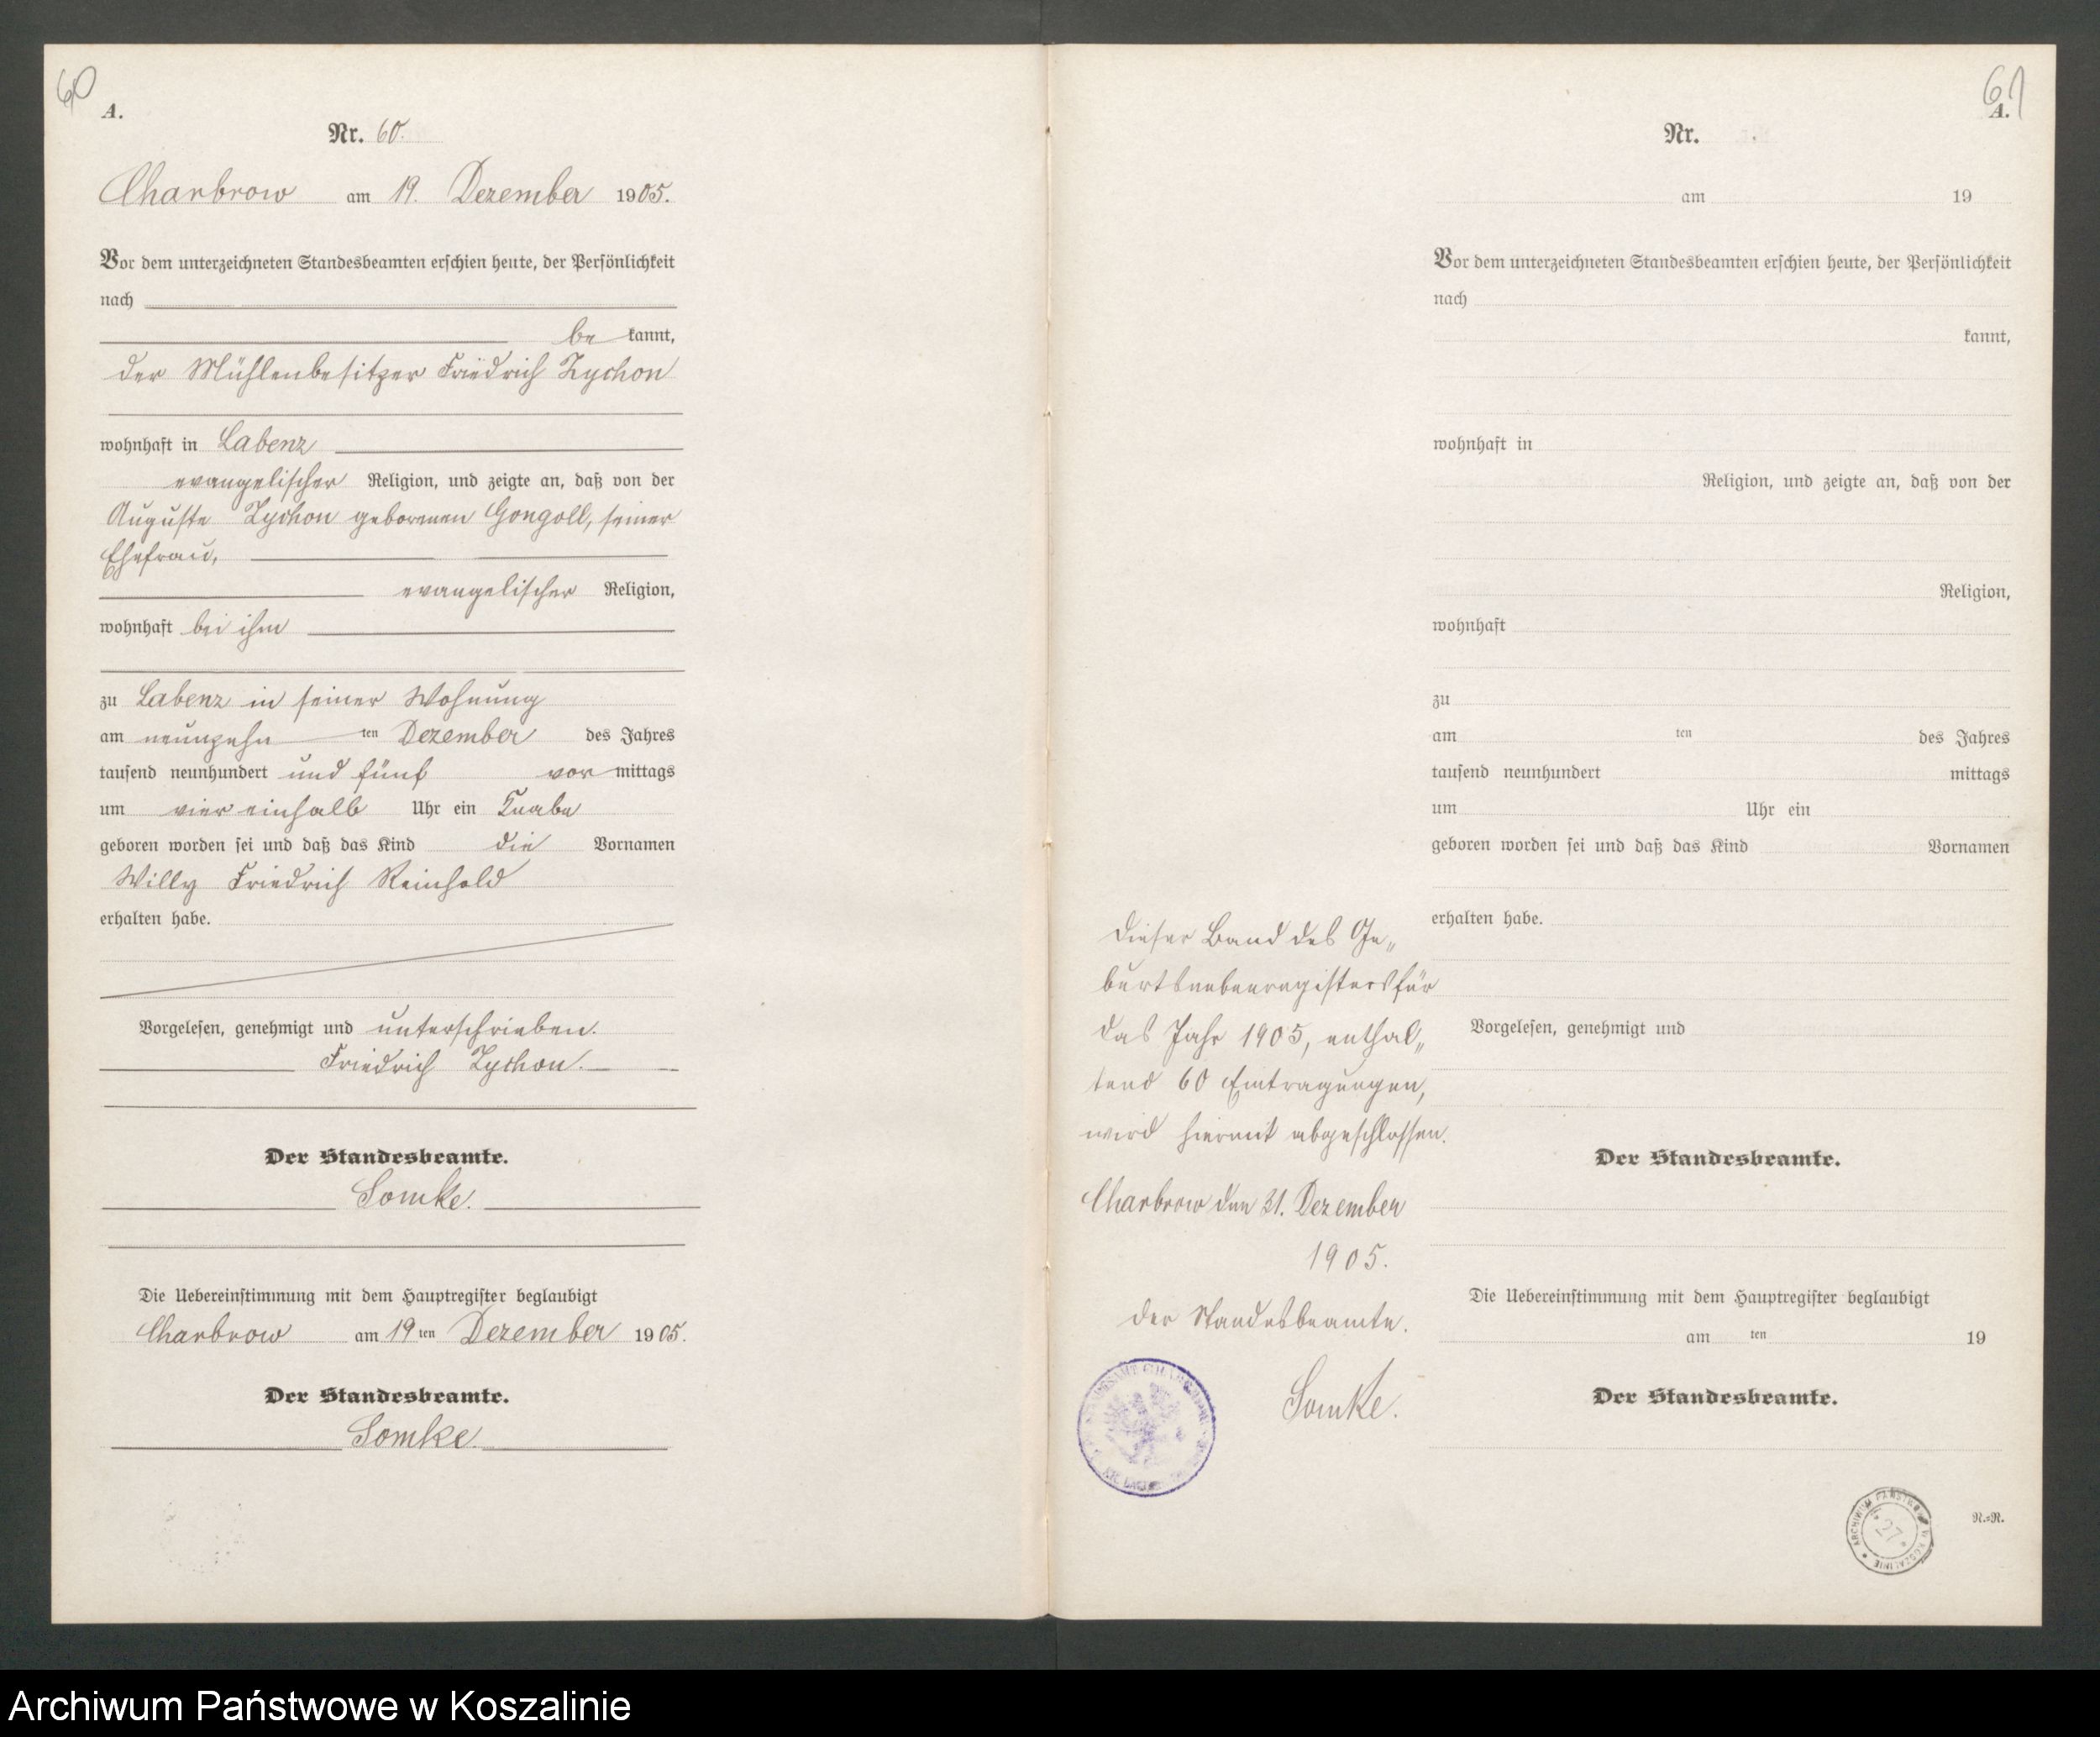 60
A.
Nr. 60.
Charbrow am 19. Dezember 1905.
Vor dem unterzeichneten Standesbeamten erschien heute, der Persönlichkeit
nach
be kannt,
der Mühlenbesitzer Friedrich Zychon
wohnhaft in Labenz
evangelischer Religion, und zeigte an, daß von der
Auguste Zychon geborenen Gongoll, seiner
Ehefrau,
evangelischer Religion,
wohnhaft bei ihm
zu Labenz in seiner Wohnung
am neunzehn ten Dezember des Jahres
tausend neunhundert und fünf vor mittags
um vier einhalb Uhr ein Knabe
geboren worden sei und daß das Kind die Vornamen
Willy Friedrich Reinhold
erhalten habe.
Vorgelesen, genehmigt und unterschrieben.
Friedrich Zychon.
Der Standesbeamte.
Somke.
Die Uebereinstimmung mit dem Hauptregister beglaubigt
Charbrow am 19 ten Dezember 1905.
Der Standesbeamte.
Somke.
61
A.
Nr.
am 19
Vor dem unterzeichneten Standesbeamten erschien heute, der Persönlichkeit
nach
kannt,
wohnhaft in
Religion, und zeigte an, daß von der
Religion,
wohnhaft
zu
am ten des Jahres
tausend neunhundert mittags
um Uhr ein
geboren worden sei und daß das Kind Vornamen
erhalten habe.
Vorgelesen, genehmigt und
Der Standesbeamte.
Die Uebereinstimmung mit dem Hauptregister beglaubigt
am ten 19
Der Standesbeamte.
Dieser Band des Ge„
burtsnebenregisters für
das Jahr 1905, enthal„
tend 60 Eintragungen,
wird hiermit abgeschlossen.
Charbrow den 31. Dezember
1905.
Der Standesbeamte.
Somke.
ARCHIWUM PAŃSTWOWE W KOSZALINIE
27
N.=R.
Archiwum Państwowe w Koszalinie